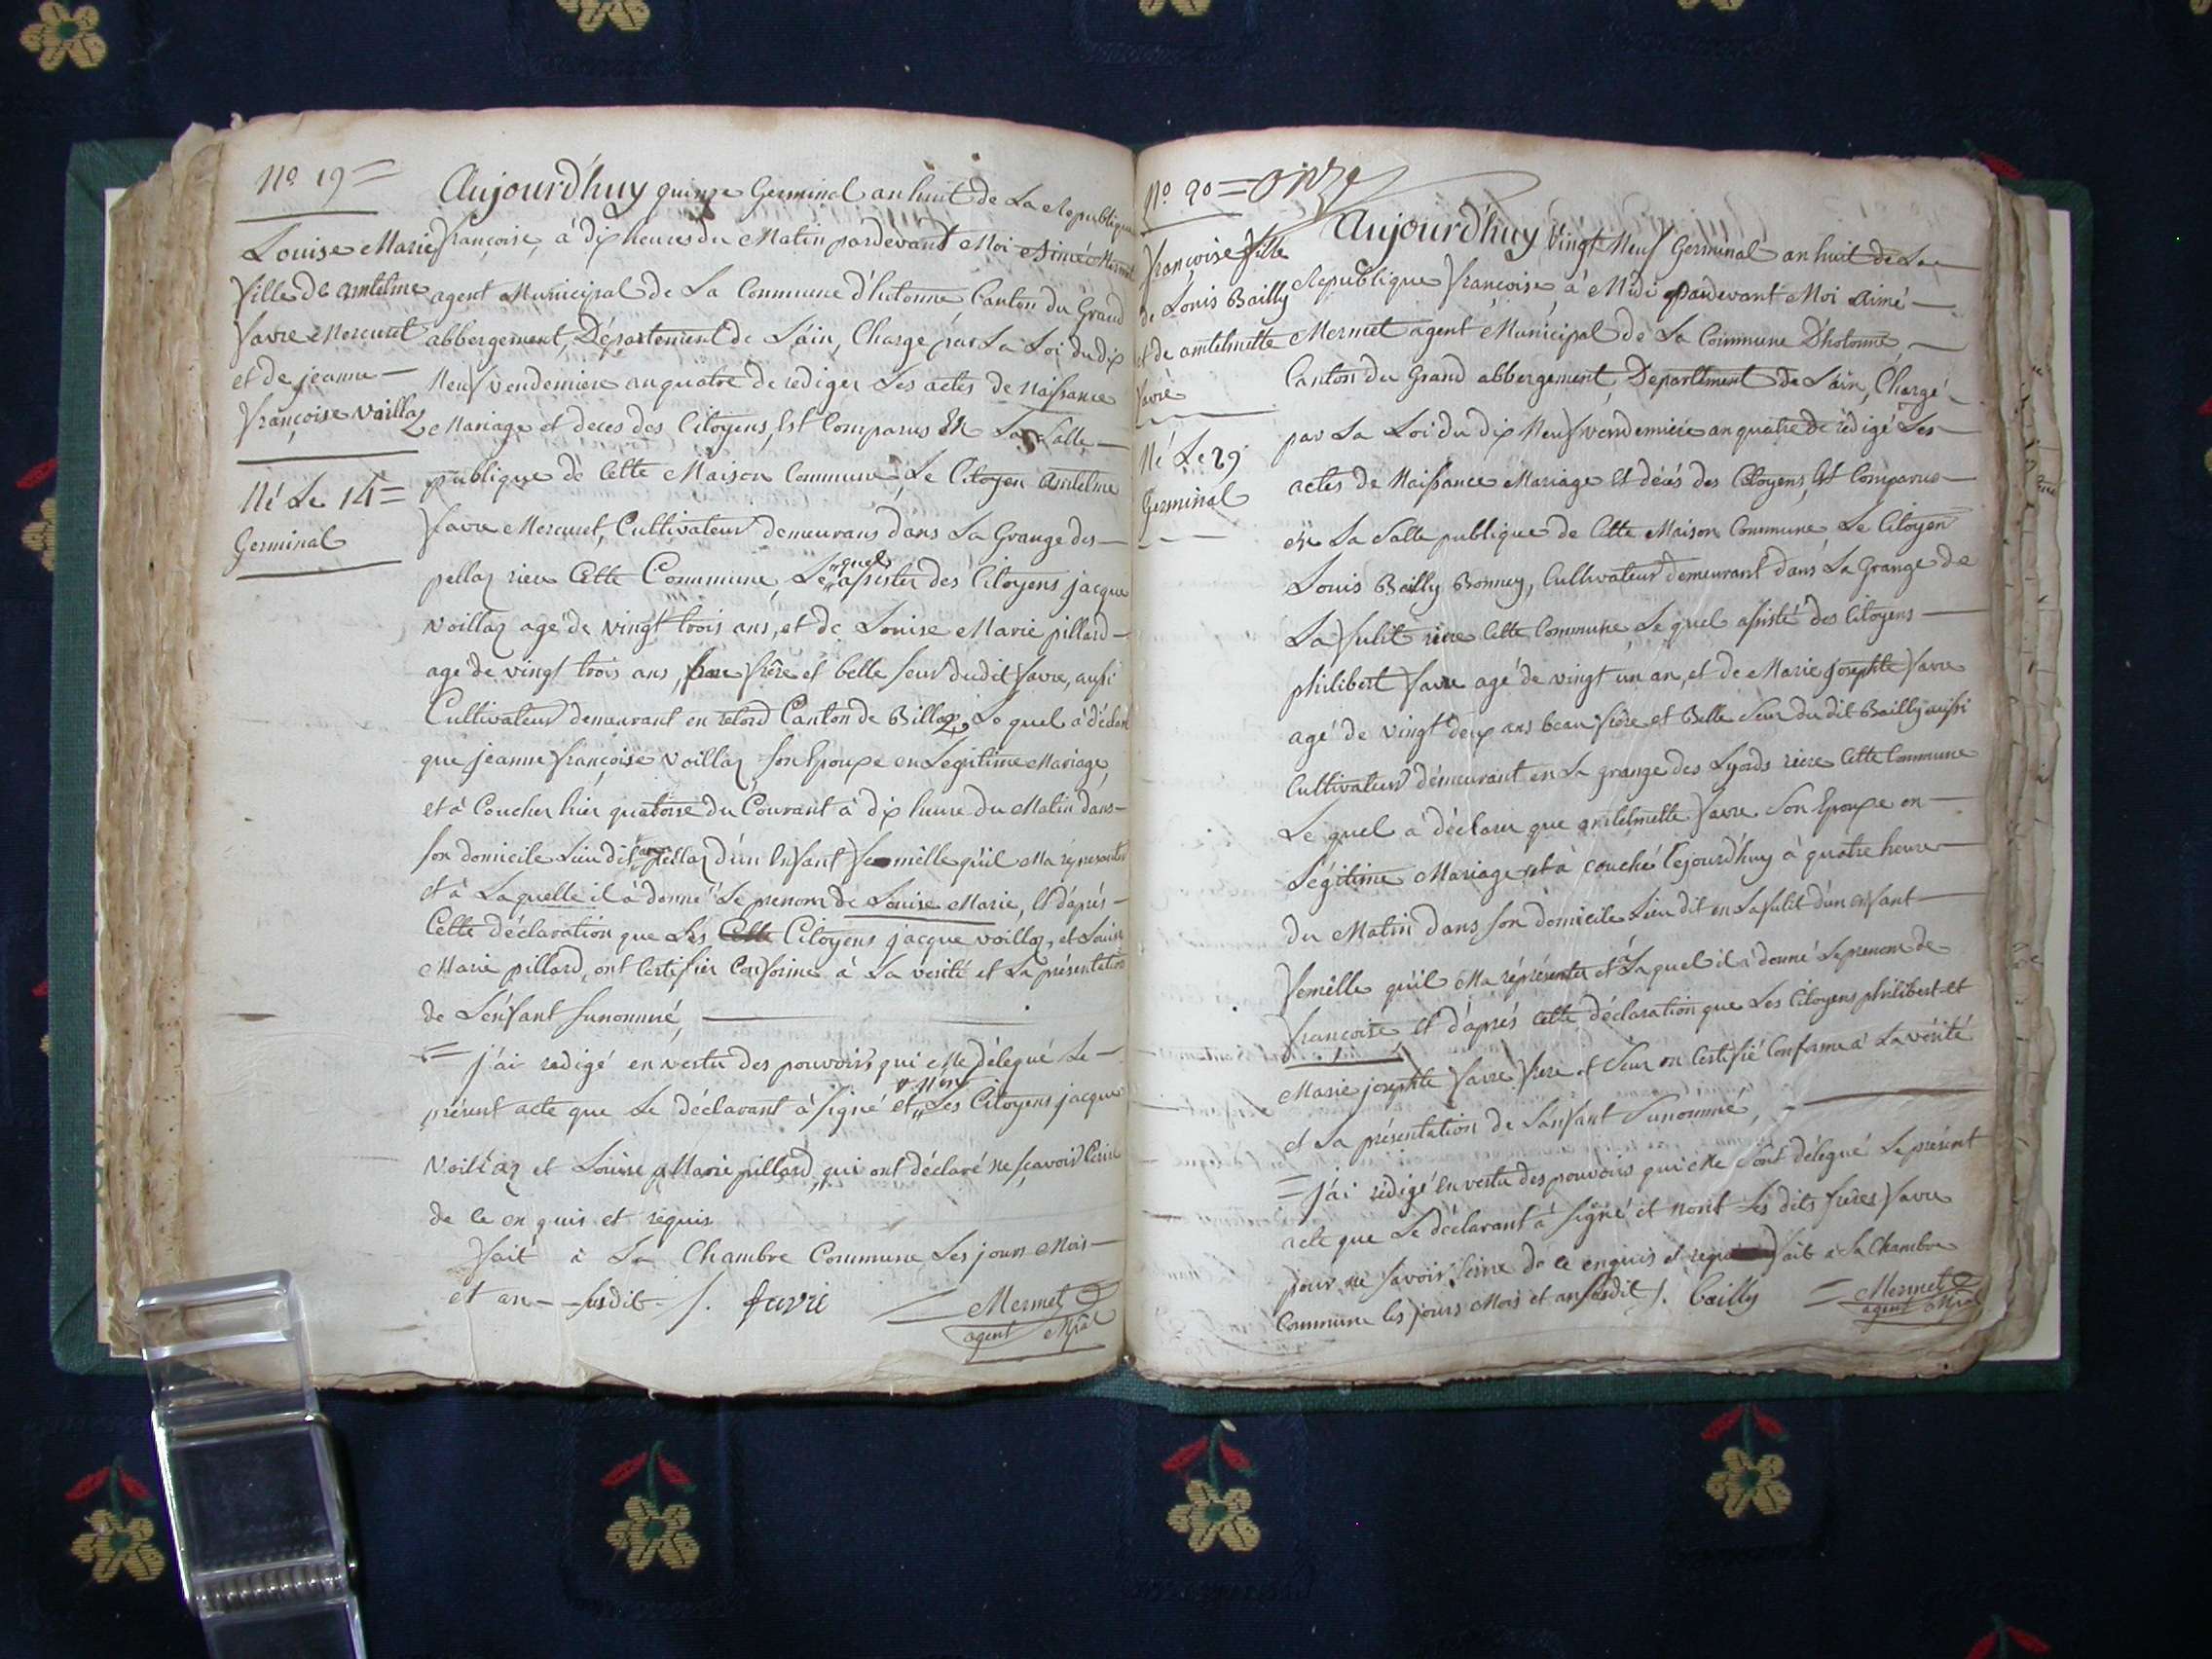 No 19 =
Louise Marie
fille de antelme
favre Mercuret
et de jeanne —
françoise Vaillaz
Né Le 14 =
Germinal
Aujourd'huy quinze Germinal an huit de La Republique
françoise, à dix heures du Matin pardevant Moi Aimé Mermet
agent Municipal de La Commune d'hotonne Canton du Grand
abbergement, Département de L'ain, Chargé par La Loi du dix
Neuf vendemiere an quatre de rediger Les actes de Naissance
Mariage et deces des Citoyens, Est Comparus EN La Salle —
publique de Cette Maison Commune, Le Citoyen Antelme
favre Mercuret, Cultivateur demeurans dans La Grange des —
pellaz riere Cette Commune, Lequel assister des Citoyens jacque
Voillaz agé de vingt trois ans, et de Louise Marie pillard —
age de vingt trois ans, frere et belle seur dudit favre, aussi
Cultivateur demeurant en retord Canton de Billaz, Le quel à déclaré
que jeanne françoise Voillaz son Epouse en Légitime Mariage,
et à Coucher hier quatorze du Courant à dix heure du Matin dans —
son domicile Lieu dit pellaz d'un Enfant femelle qu'il Ma représenter
et à Laquelle il à donné Le prenom de Louise Marie, Et d'après —
Cette déclaration que Les Citoyens jacque voillaz, et Louise
Marie pillard, ont Certifier Conforme à La vérité et La présentation
de L'enfant sunommé,
= j'ai redigé en vertu des pouvoirs qui Me délegué Le —
présent acte que Le déclarant à signé et Non Les Citoyens jacque
Voillaz et Louise Marie pillard, qui ont déclaré ne sçavoir Ecrire
de Ce en quis et requis
fait à La Chambre Commune Les jours Mois —
et an — susdit /. favre Mermet
agent Mpal
No 20 = onze
françoise fille
de Louis Bailly
et de antelmette
favre
Né Le 29
Germinal
Aujourd'huy Vingt Neuf Germinal an huit de La —
Republique françoise, à Midi pardevant Moi Aimé —
Mermet agent Municipal de La Commune D'hotonne, —
Canton du Grand abbergement, Departement de L'ain, Chargé
par La Loi du dix Neuf vendemiere an quatre de redigé Les
actes de Naissance Mariage Et décés des Citoyens, Est Comparus —
en La Salle publique de Cette Maison Commune, Le Citoyen
Louis Bailly Bonney, Cultivateur demeurant dans La Grange de
La fulit riere Cette Commune, Le quel assisté des Citoyens —
philibert favre agé de vingt un an, et de Marie josephte favre
agé de vingt deux ans beau frère et Belle Seur du dit Bailly aussi
Cultivateur demeurant en La grange des Lyods riere Cette Commune
Le quel à déclarer que antelmette favre Son Epouse en —
Légitime Mariage et à couché Cejourd'huy à quatre heure —
du Matin dans son domicile Lieu dit en La fulit d'un enfant —
femelle qu'il Ma réprésenter et Laquel il à donné Le prenom de
françoise, et d'après cette déclaration que Les Citoyens philibert et
Marie josephte favre frere et Seur on Certifié Conforme à La vérité
et La présentation de Lanfant Sunommé,
= j'ai rédigé En vertu des pouvoirs qui Me Sont délegué Le présent
acte que Le déclarant à signé et nont Les dits frères favre
pour ne savoir Ecrire de ce enquis et requis fait à La Chambre
Commune les jours Mois et an susdit /. bailly = Mermet
agent Mpal